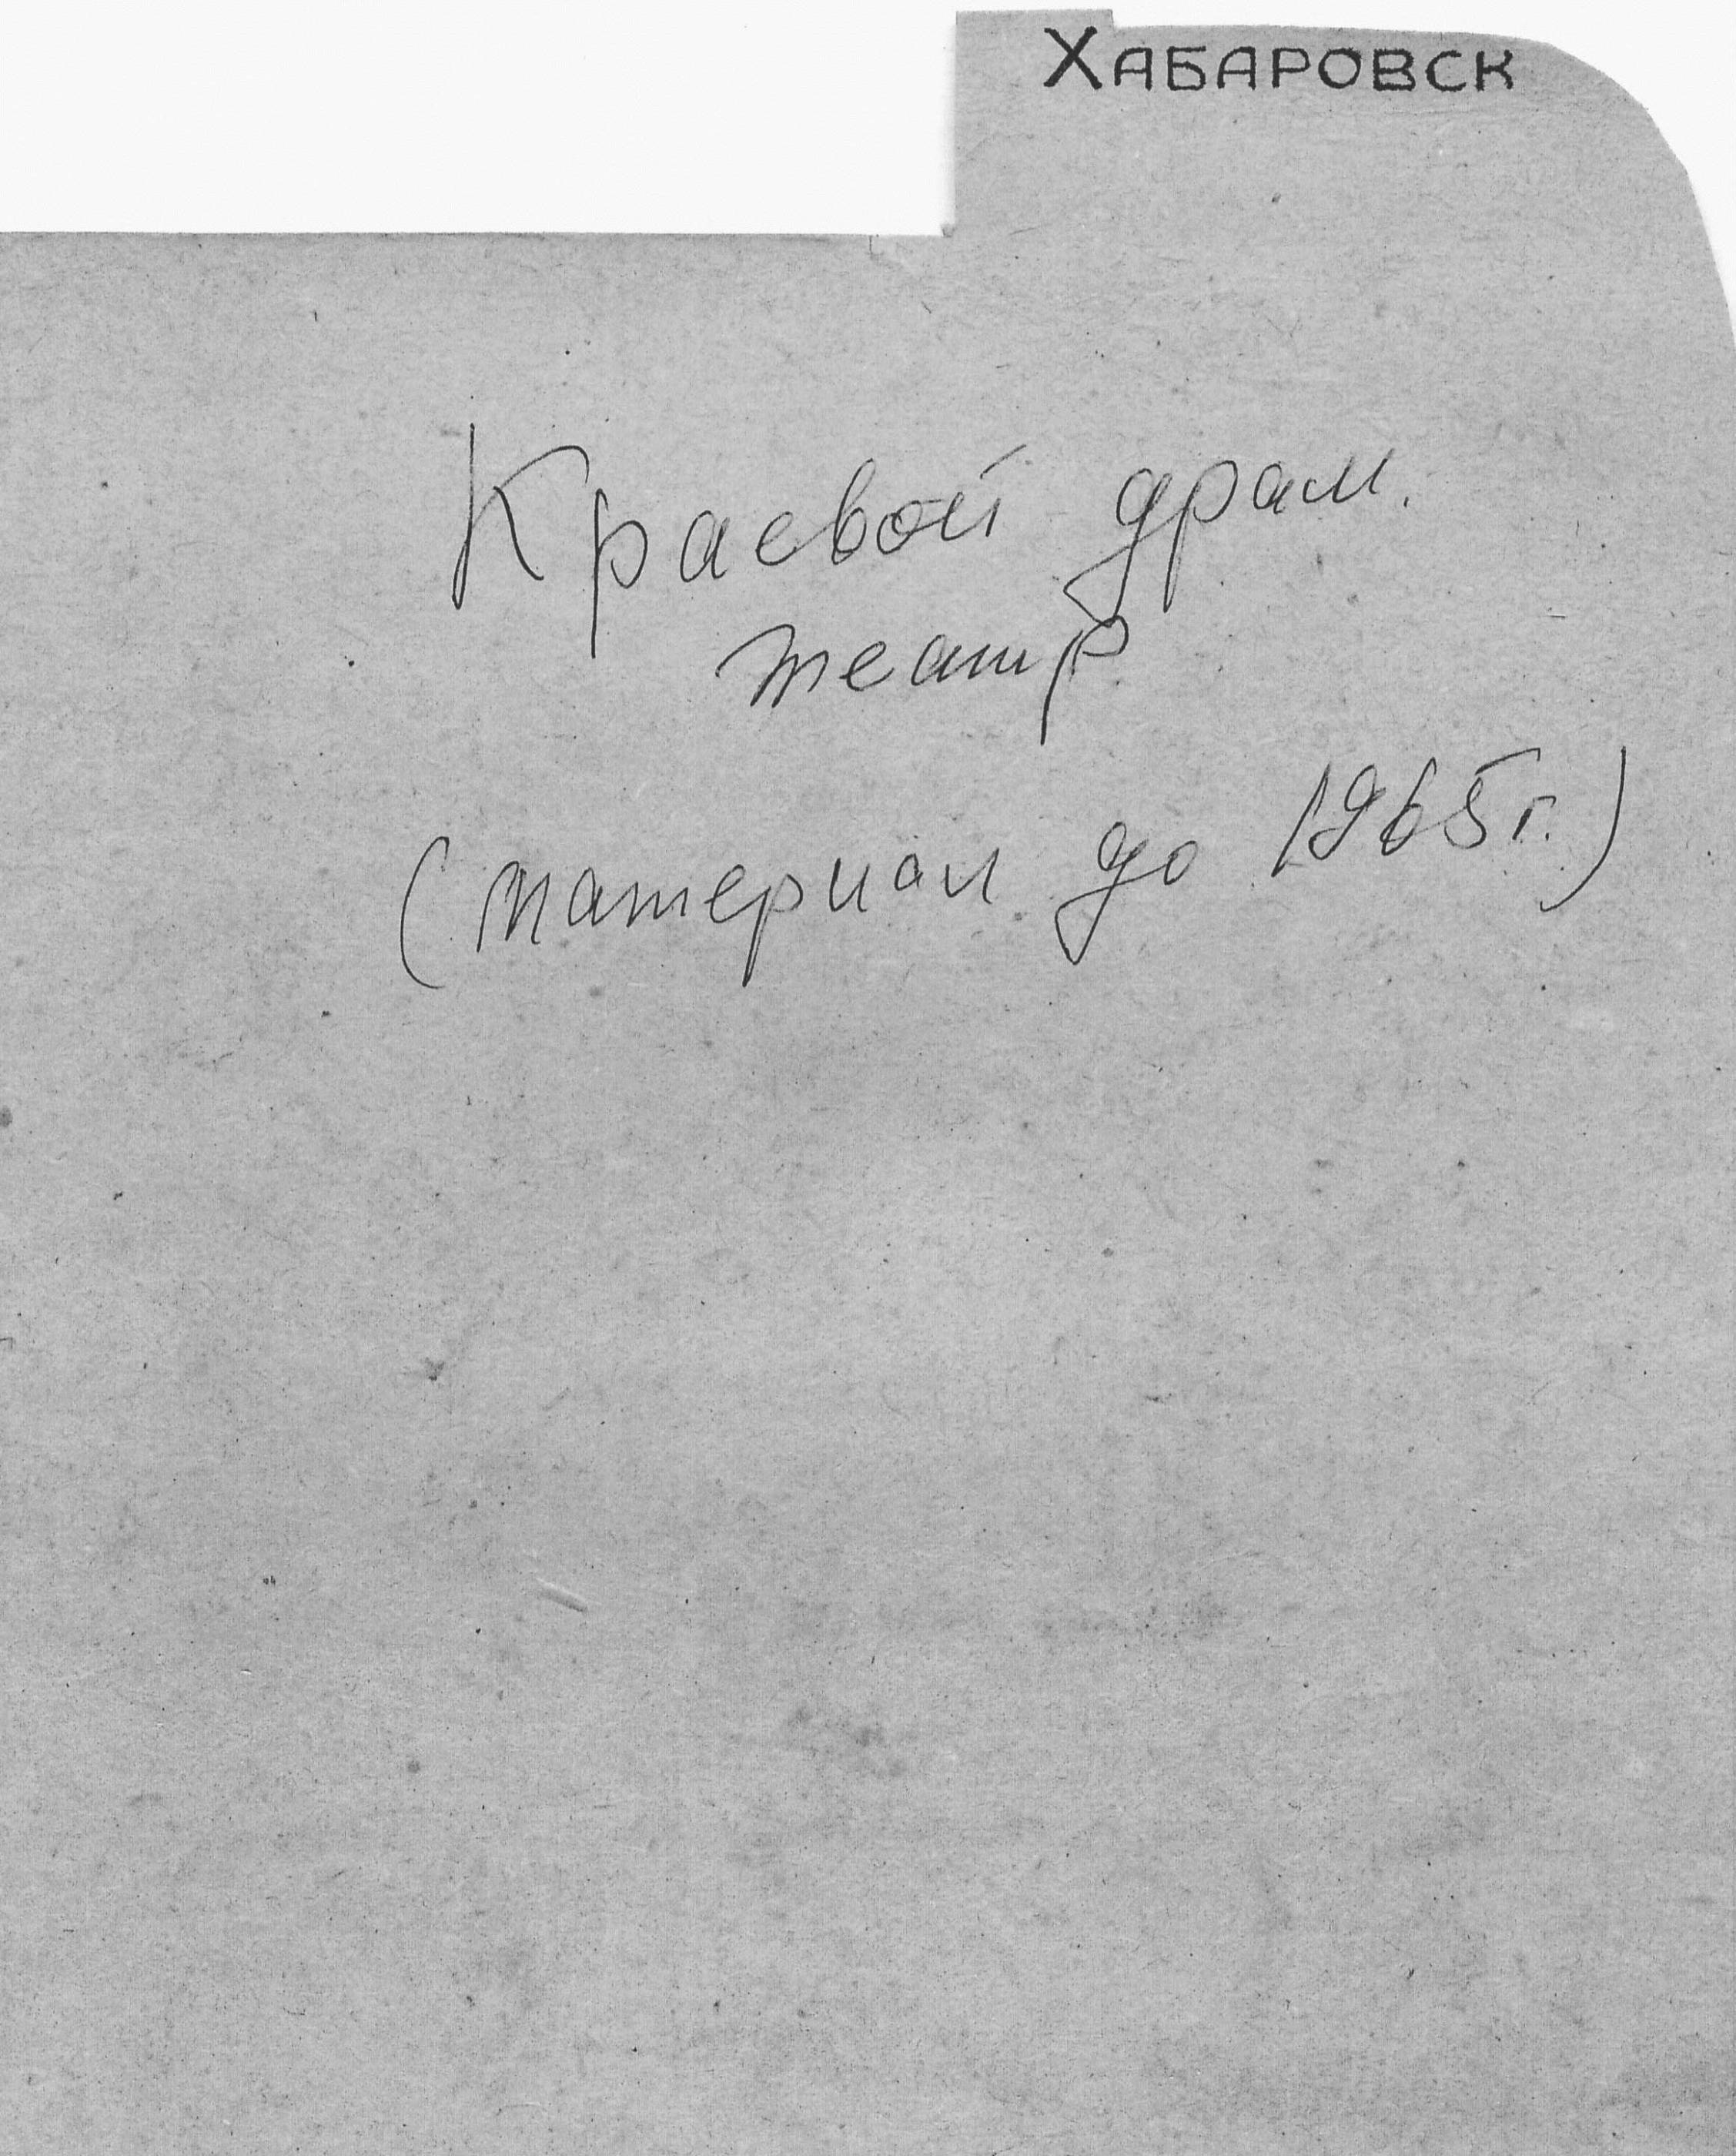 ХАБАРОВСК
Краевой драм.
театр
(материал до 1965 г.)